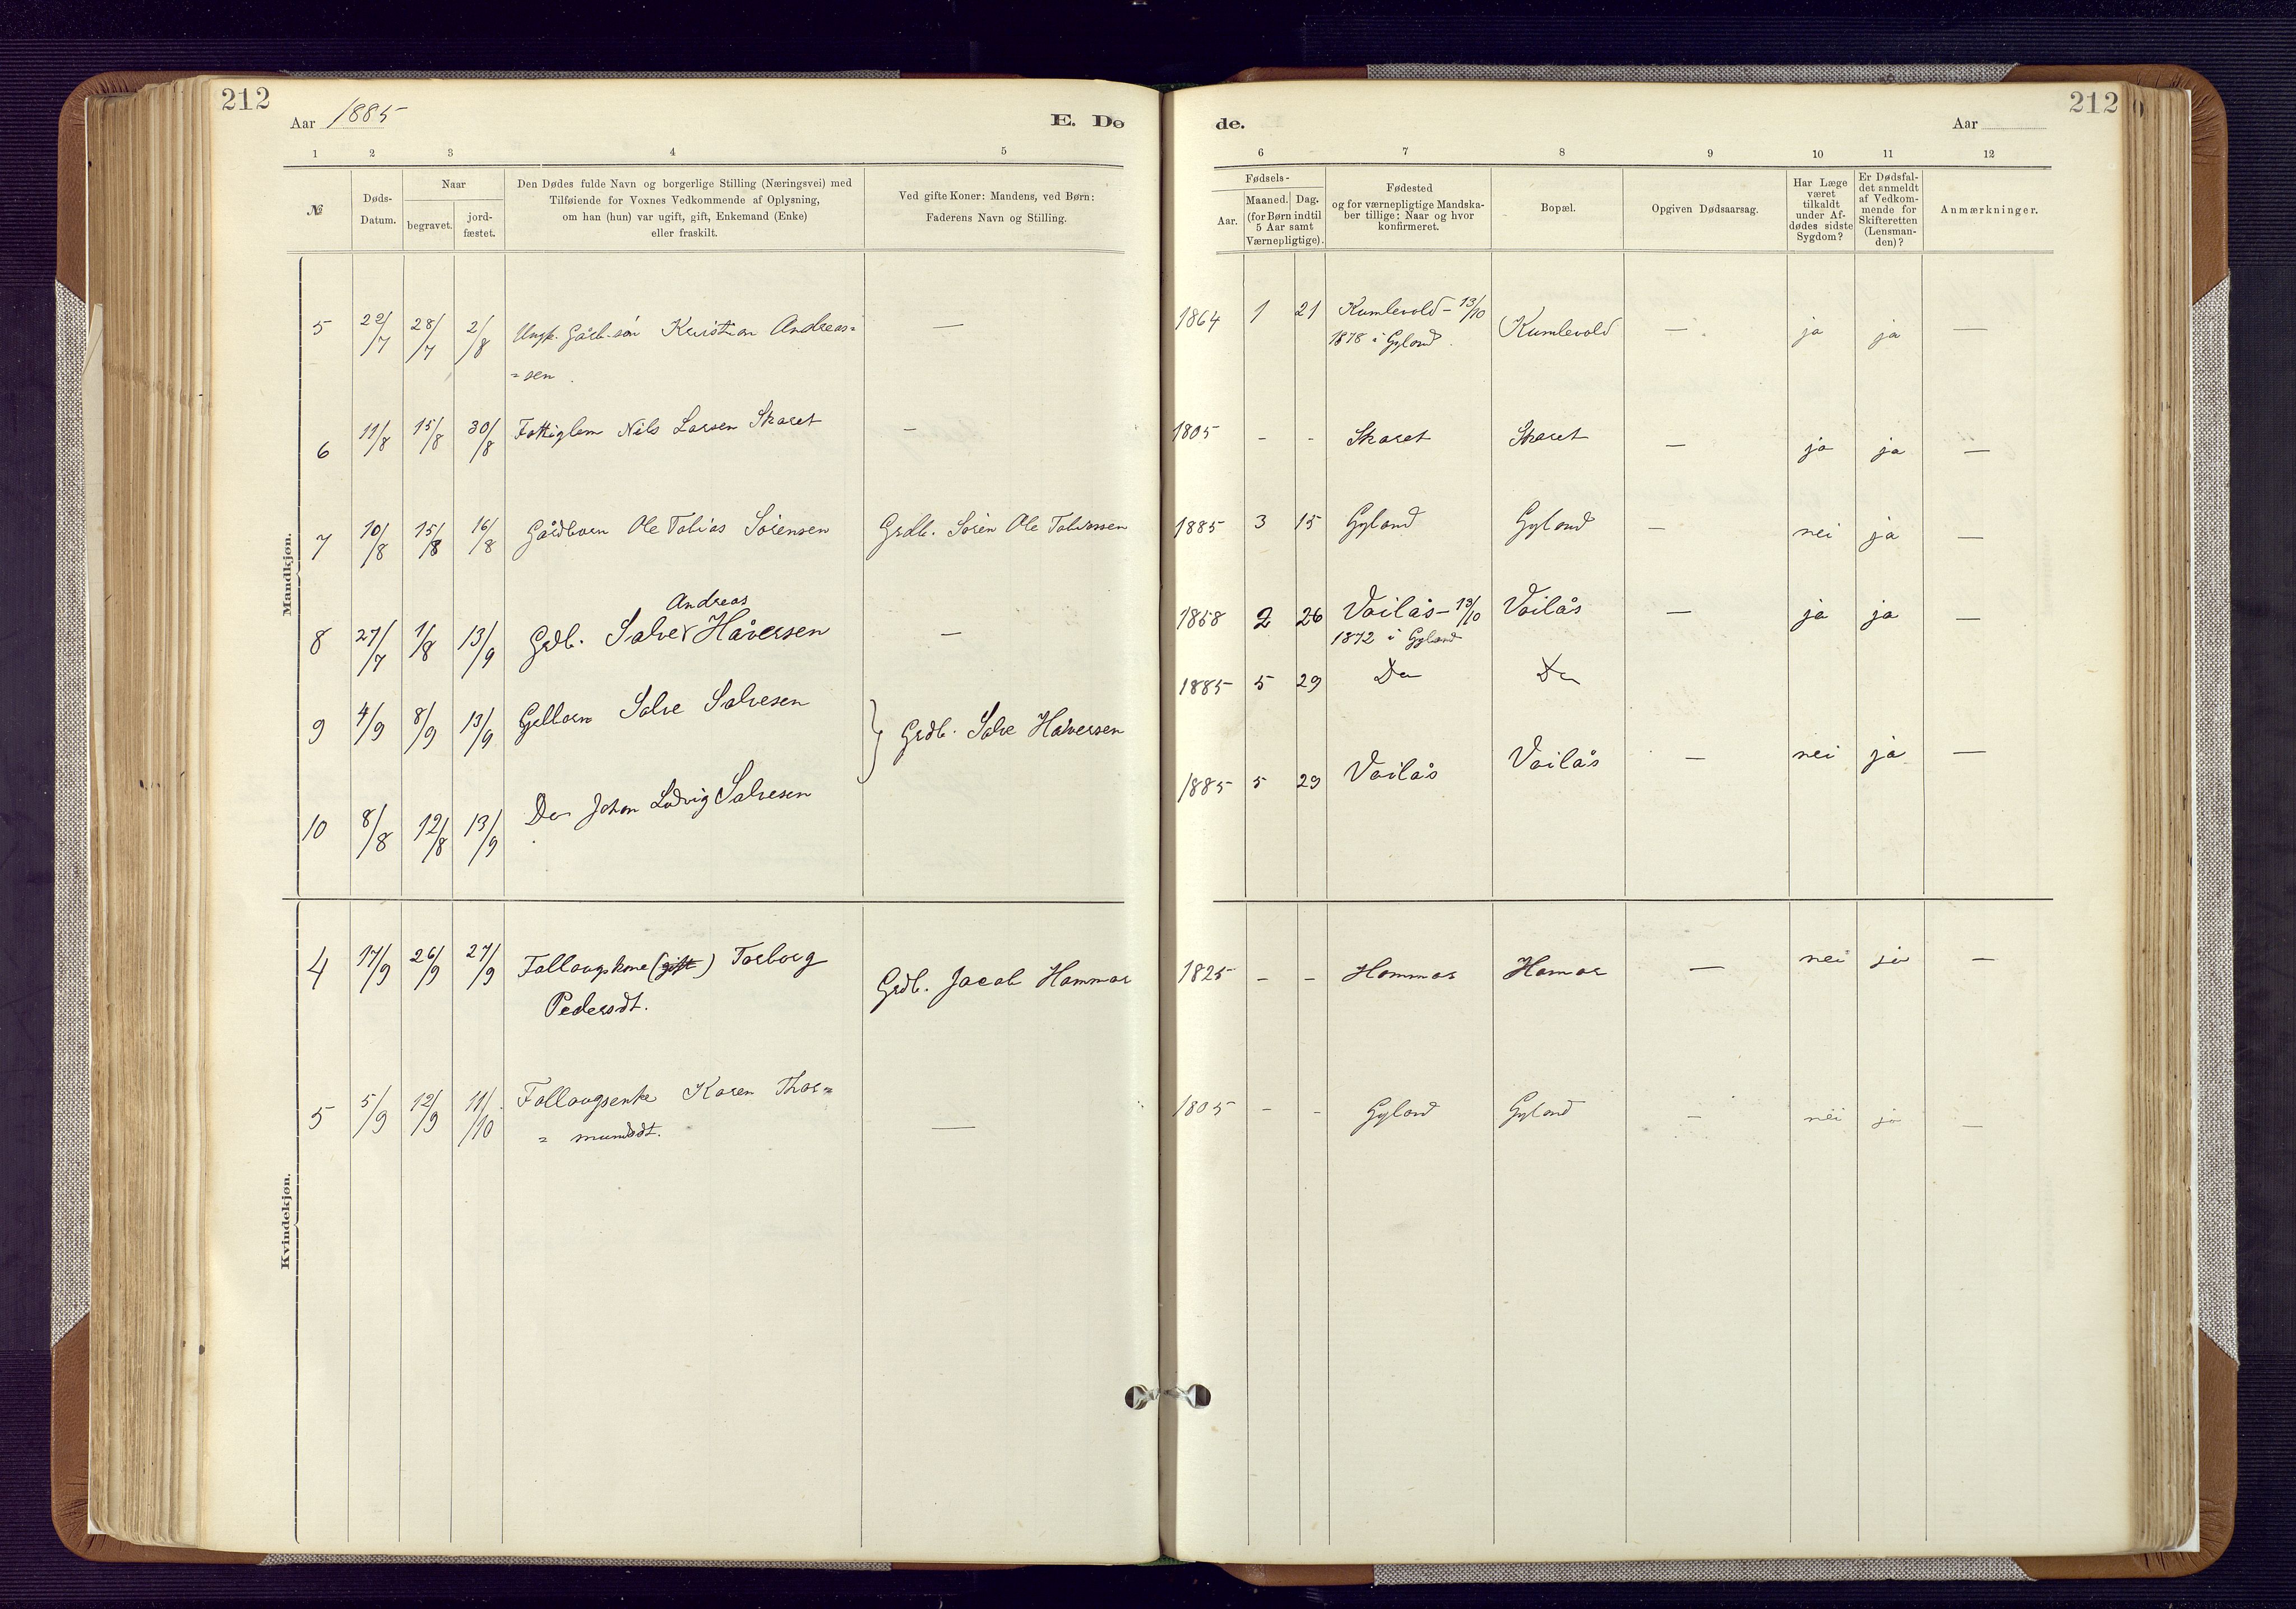 212
Aar 1885
E. Dø
1 2 3 4 5
№
Døds-Datum.
Naar
begravet.
jord-fæstet.
Den Dødes fulde Navn og borgerlige Stilling (Næringsvei) med
Tilføiende for Voxnes Vedkommende af Oplysning,
om han (hun) var ugift, gift, Enkemand (Enke)
eller fraskilt.
Ved gifte Koner: Mandens, ved Børn:
Faderens Navn og Stilling.
Mandkjøn.
5 22/7 28/7 2/8 Ungk. Gårb.søn Kristian Andreas=
=sen. —
6 11/8 15/8 30/8 Fattiglem Nils Larsen Skaret —
7 10/8 15/8 16/8 Gårdbarn Ole Tobias Sörensen Grdb. Sören Ole Tobiassen
Andreas
8 27/7 1/8 13/9 Grdb. Salve Håversen —
9 4/9 8/9 13/9 Grdbarn Salve Salvesen
Grdb. Salve Håversen
10 8/8 12/8 13/9 Do Johan Ludvig Salvesen
Kvindekjøn.
4 17/9 26/9 27/9 Follaugskone (gift) Torborg
Pedersdt. Grdb. Jacob Hammar
5 5/9 12/9 11/10 Follaugsenke Karen Thor=
= mundsdt. —
212
de.
Aar
6 7 8 9 10 11 12
Fødsels-
Aar.
Maaned. Dag.
(for Børn indtil
5 Aar samt
Værnepligtige).
Fødested
og for værnepligtige Mandska-
ber tillige: Naar og hvor
konfirmeret.
Bopæl.
Opgiven Dødsaarsag.
Har Læge
været
tilkaldt
under Af-
dødes sidste
Sygdom?
Er Dødsfal-
det anmeldt
af Vedkom-
mende for
Skifteretten
(Lensman-
den)?
Anmærkninger.
1864 1 21 Kumlevold – 13/10
1878 i Gyland. Kumlevold — ja ja —
1805 - - Skaret Skaret — ja ja —
1885 3 15 Gyland Gyland — nei ja —
1858 2 26 Voilås – 13/10 Voilås — ja ja —
1872 i Gyland
1885 5 29 Do Do
1885 5 29 Voilås Voilås — nei ja —
1825 - - Hammar Hamar — nei ja —
1805 - - Gyland Gyland — nei ja —